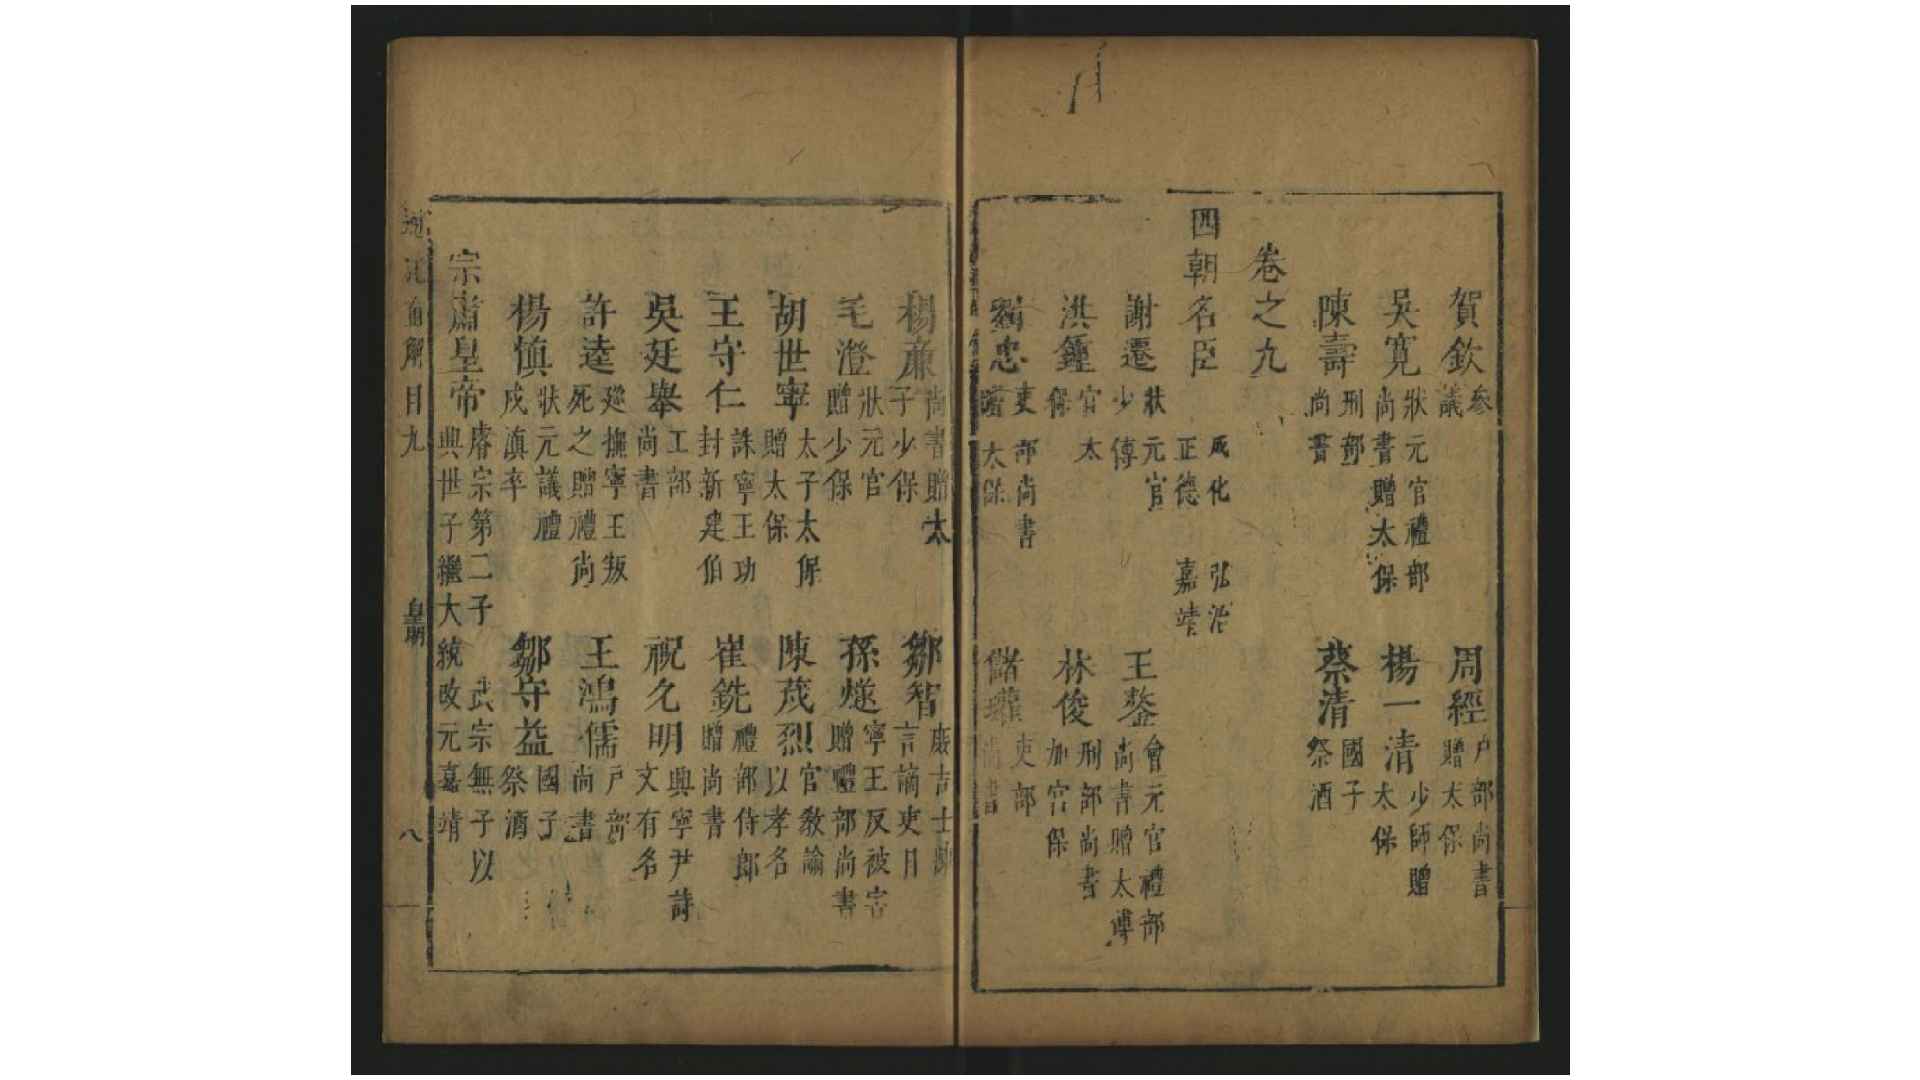 賀欽 參議 周經 戶部尚書贈太保
吳寬 狀元官禮部尚書贈太保 楊一清 少師贈太保
陳壽 刑部尚書 蔡清 國子祭酒
卷之九
四朝名臣 成化 弘治 正德 嘉靖
謝遷 狀元官少傅 王鏊 會元官禮部尚書贈太傅
洪鍾 官太保 林俊 刑部尚書加宮保
忠 吏部尚書贈太保 儲瓘 吏部尚書
楊廉 尚書贈太子少保 鄒智 庶吉士 言謫吏目
毛澄 狀元官贈少保 孫燧 寧王反被害贈禮部尚書
胡世寧 太子太保贈太保 陳茂烈 官教諭以孝名
王守仁 誅寧王功封新建伯 崔銑 禮部侍郎贈尚書
吳廷舉 工部尚書 祝允明 興寧尹詩文有名
許逵 廵撫寧王叛死之贈禮尚 王鴻儒 戶部尚書
楊慎 狀元議禮戍滇卒 鄒守益 國子祭酒
宗肅皇帝 睿宗第二子 武宗無子以興世子繼大統改元嘉靖
直解目九 皇明 八